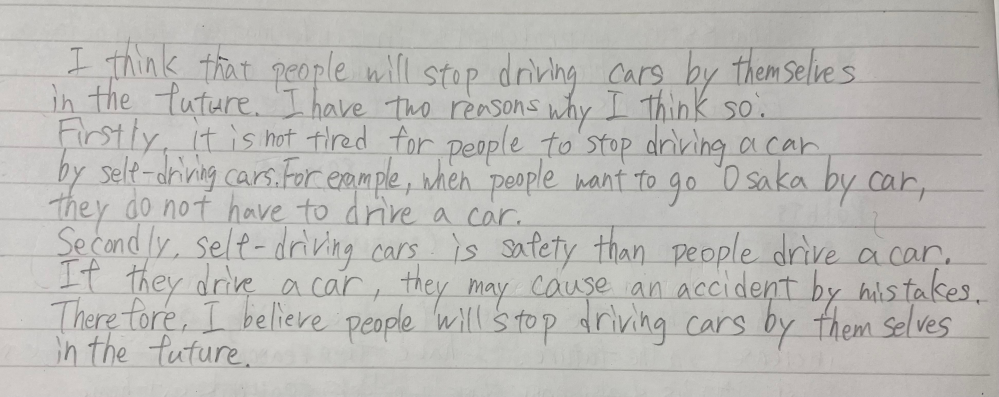 I think that people will stop driving cars by themselves
in the future. I have two reasons why I think so.
Firstly, it is not tired for people to stop driving a car
by self-driving cars. For example, when people want to go Osaka by car,
they do not have to drive a car.
Secondly, self-driving cars is safety than people drive a car.
If they drive a car, they may cause an accident by mistakes.
Therefore, I believe people will stop driving cars by themselves
in the future.